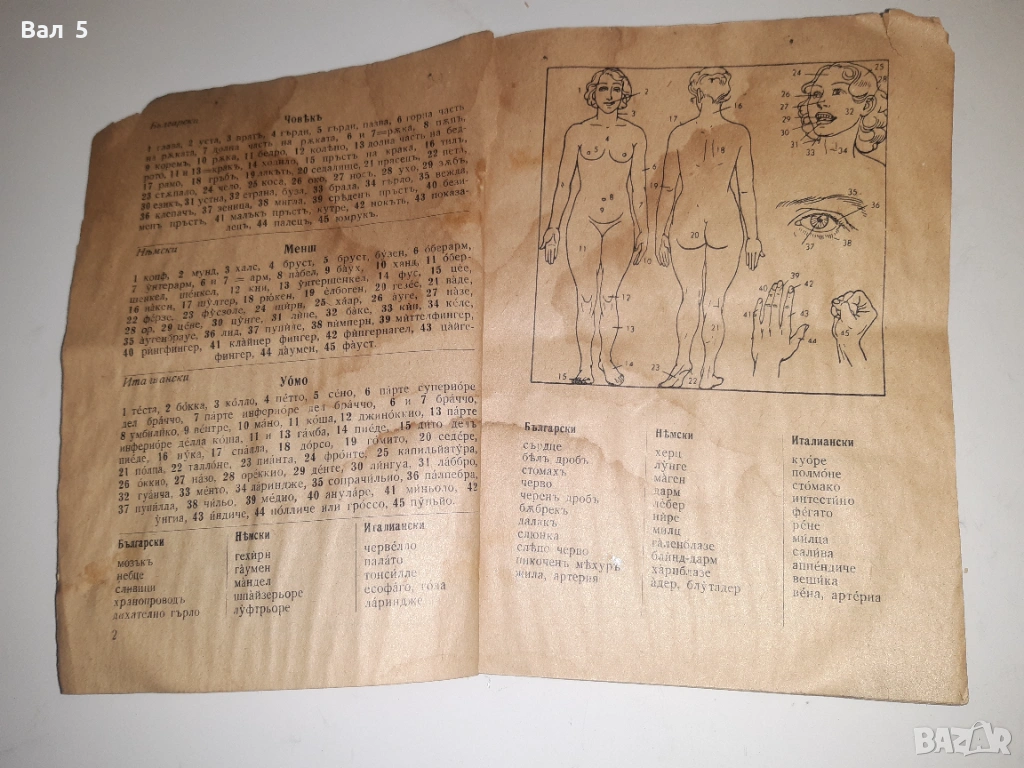 Вал 5
Български
Човѣкъ
1 глава, 2 уста, 3 вратъ, 4 гърди, 5 гърди, пазва, 6 горна часть
на рѫката, 7 долна часть на рѫката, 6 и 7=рѫка, 8 пѫпъ,
9 коремъ, 10 рѫка, 11 бедро, 12 колѣно, 13 долна часть на бед-
рото, 11 и 13 =кракъ, 14 ходило, 15 пръстъ на крака, 16 тилъ,
17 рамо, 18 гръбъ, 19 лакътъ, 20 седалище, 21 прасецъ, 22 пета,
23 стѫпало, 24 чело, 25 коса, 26 око, 27 носъ, 28 ухо, 29 зѫбъ,
30 езикъ, 31 устна, 32 страна, буза, 33 брада, 34 гърло, 35 вежда,
36 клепачъ, 37 зеница, 38 мигла, 39 срѣденъ пръстъ, 40 бези-
менъ пръстъ, 41 малъкъ пръстъ, кутре, 42 нокътъ, 43 показа-
лецъ, 44 палецъ, 45 юмрукъ.
Нѣмски
Менш
1 копф, 2 мунд, 3 халс, 4 бруст, 5 бруст, бу́зен, 6 о́берарм,
7 у́нтерарм, 6 и 7 = арм, 8 на́бел, 9 баух, 10 ханд, 11 о́бер-
шенкел, ше́нкел, 12 кни, 13 у́нтершенкел, 14 фус, 15 це́е,
16 на́кен, 17 шу́лтер, 18 рю́кен, 19 е́лбоген, 20 гезе́с, 21 ва́де,
22 фе́рзе, 23 фу́сзоле, 24 щирн, 25 ха́ар, 26 а́уге, 27 на́зе,
28 ор, 29 це́не, 30 цу́нге, 31 ли́пе, 32 ба́ке, 33 кин, 34 ке́ле,
35 а́угенбрауе, 36 лид, 37 пупи́ле, 38 ви́мперн, 39 ми́ттелфингер,
40 ри́нгфингер, 41 кла́йнер фингер, 42 фи́нгернагел, 43 ца́йге-
фингер, 44 да́умен, 45 фа́уст.
Италиански
Уо́мо
1 те́ста, 2 бо́кка, 3 ко́лло, 4 пе́тто, 5 се́но, 6 па́рте суперио́ре
дел бра́ччо, 7 па́рте инферио́ре дел бра́ччо, 6 и 7 бра́ччо,
8 умбили́ко, 9 ве́нтре, 10 ма́но, 11 ко́ша, 12 джино́ккио, 13 па́рте
инферио́ре де́лла ко́ша, 11 и 13 га́мба, 14 пие́де, 15 ди́то делъ
пие́де, 16 ну́ка, 17 спа́лла, 18 до́рсо, 19 го́мито, 20 седе́ре,
21 по́лпа, 22 талло́не, 23 пиа́нта, 24 фро́нте, 25 капильиату́ра,
26 о́ккио, 27 на́зо, 28 оре́ккио, 29 де́нте, 30 ли́нгуа, 31 ла́ббро,
32 гуа́нча, 33 ме́нто, 34 лари́ндже, 35 сопрачи́льио, 36 па́лпебра,
37 пупи́лла, 38 чи́льо, 39 ме́дио, 40 анула́ре, 41 ми́ньоло, 42
у́нгиа, 43 и́ндиче, 44 по́лличе или гро́ссо, 45 пу́ньйо.
Български
Нѣмски
Италиански
мозъкъ
гехи́рн
черве́лло
небце
га́умен
пала́то
сливици
ма́ндел
тонси́лле
хранопроводъ
шпа́йзерьоре
есофа́го, го́ла
дихателно гърло
лу́фтрьоре
лари́ндже
2
1 2 3 4 5 6 7 8 9 10 11 12 13 14 15
16 17 18 19 20 21 22 23
24 25 26 27 28 29 30 31 32 33 34
35 36 37 38
39 40 41 42 43 44 45
Български
Нѣмски
Италиански
сърдце
херц
куо́ре
бѣлъ дробъ
лу́нге
полмо́не
стомахъ
ма́ген
сто́мако
черво
дарм
интести́но
черенъ дробъ
ле́бер
фе́гато
бѫбрекъ
ни́ре
ре́не
далакъ
милц
ми́лца
слюнка
га́ленблазе
сали́ва
слѣпо черво
бли́нд-дарм
аппе́ндиче
пикоченъ мѣхуръ
ха́рнблазе
веши́ка
жила, артерия
а́дер, блу́тадер
ве́на, арте́риа
BAZAR